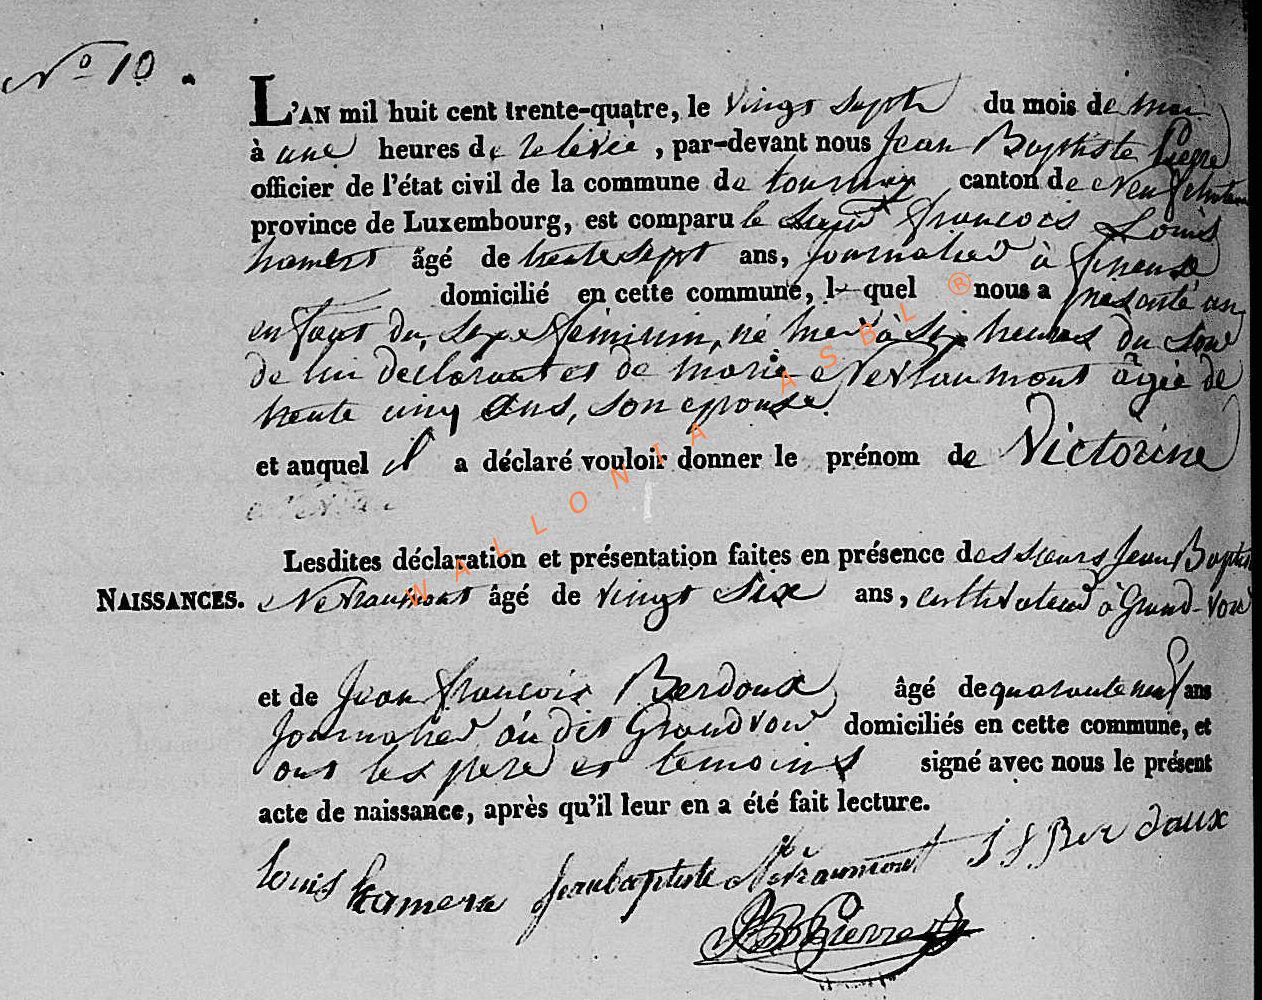 No 10.
L'AN mil huit cent trente-quatre, le vingt septe du mois de mai
à une heures de relevée, par-devant nous Jean Baptiste Pierre
officier de l'état civil de la commune de tournay canton de Neufchateau
province de Luxembourg, est comparu le Sieur francois Louis
âgé de trente sept ans, journalier à
domicilié en cette commune, le quel nous a présenté un
enfant du sexe féminin, né hier à six heures du soir
de lui déclarant et de marie Nevraumont âgée de
trente cinq ans, son epouse.
et auquel il a déclaré vouloir donner le prénom de Victorine
Lesdites déclaration et présentation faites en présence des sieurs Jean Baptiste
NAISSANCES. Nevraumont âgé de vingt Six ans, cultivateur à Grand-voir
et de Jean francois Berdoux âgé de quarante neuf ans
Journalier au dit Grandvoir domiciliés en cette commune, et
ont les pere et temoins signé avec nous le présent
acte de naissance, après qu'il leur en a été fait lecture.
Louis hamera Jeanbaptiste Nevraumont J f Berdoux
JB Pierre
WALLONIA ASBL ®